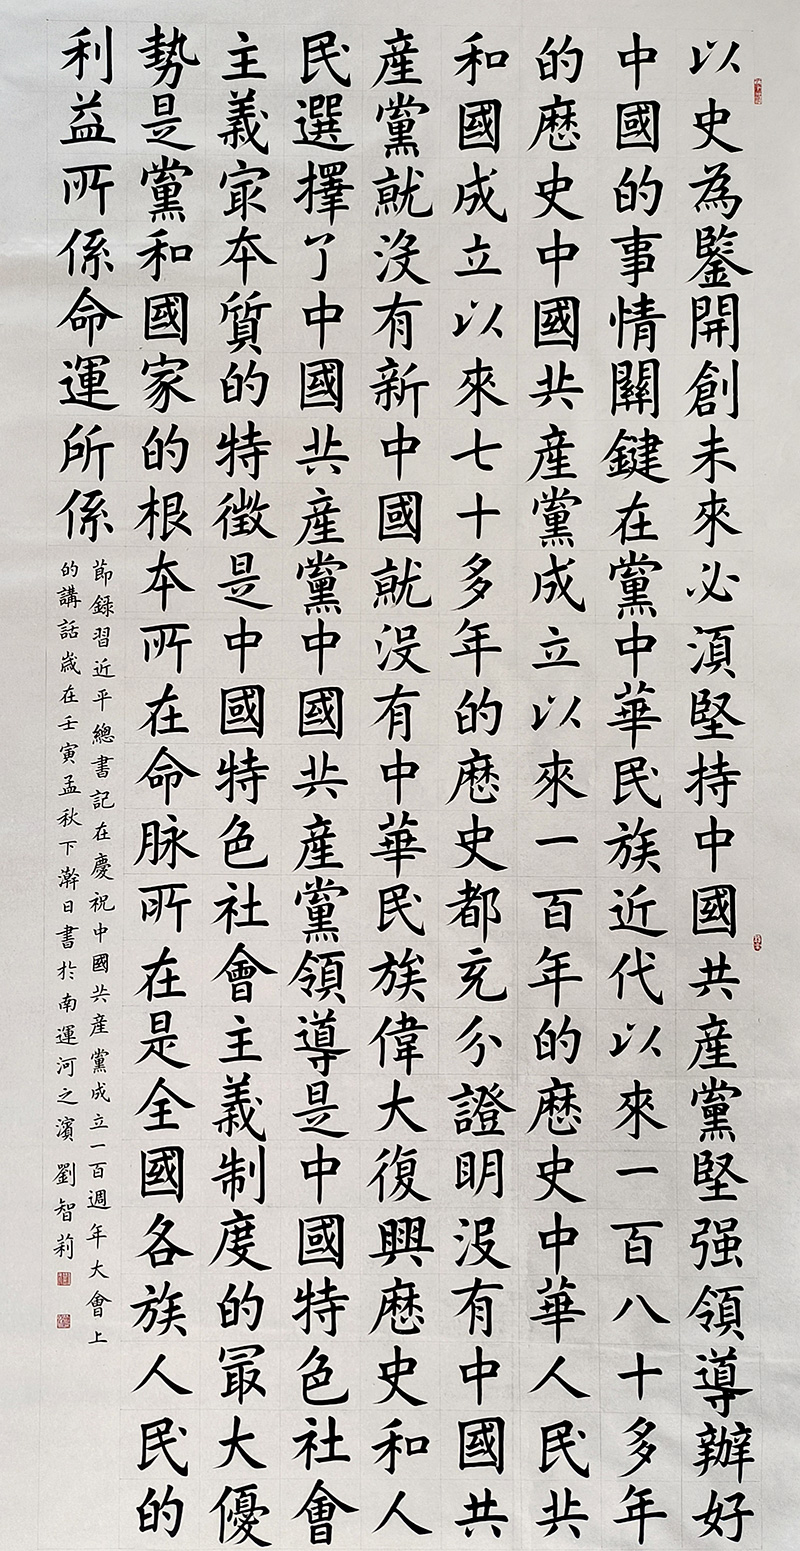 以史為鑒開創未來必須堅持中國共產黨堅强領導辦好
中國的事情關鍵在黨中華民族近代以來一百八十多年
的歷史中國共產黨成立以來一百年的歷史中華人民共
和國成立以來七十多年的歷史都充分證明沒有中國共
產黨就沒有新中國就沒有中華民族偉大復興歷史和人
民選擇了中國共產黨中國共產黨領導是中國特色社會
主義最本質的特徵是中國特色社會主義制度的最大優
勢是黨和國家的根本所在命脉所在是全國各族人民的
利益所係命運所係
節録習近平總書記在慶祝中國共產黨成立一百週年大會上
的講話歲在壬寅孟秋下澣日書於南運河之濱 劉智莉